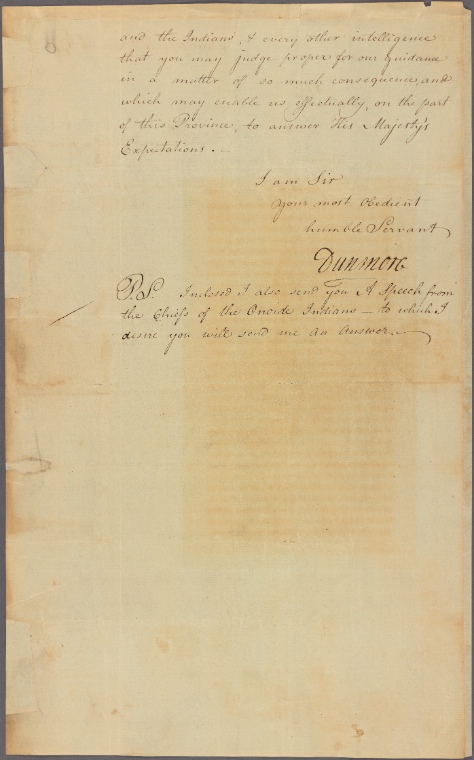 and the Indians, & every other intelligence
that you may judge proper for our guidance
in a matter of so much consequence, and
which may enable us effectually, on the part
of this Province, to answer His Majesty's
Expectations.
I am Sir
your most obedient
humble Servant
Dunmore
P.S. Inclosed I also send you A Speech from
the Chiefs of the Oneide Indians – to which I
desire you will send me an Answer.